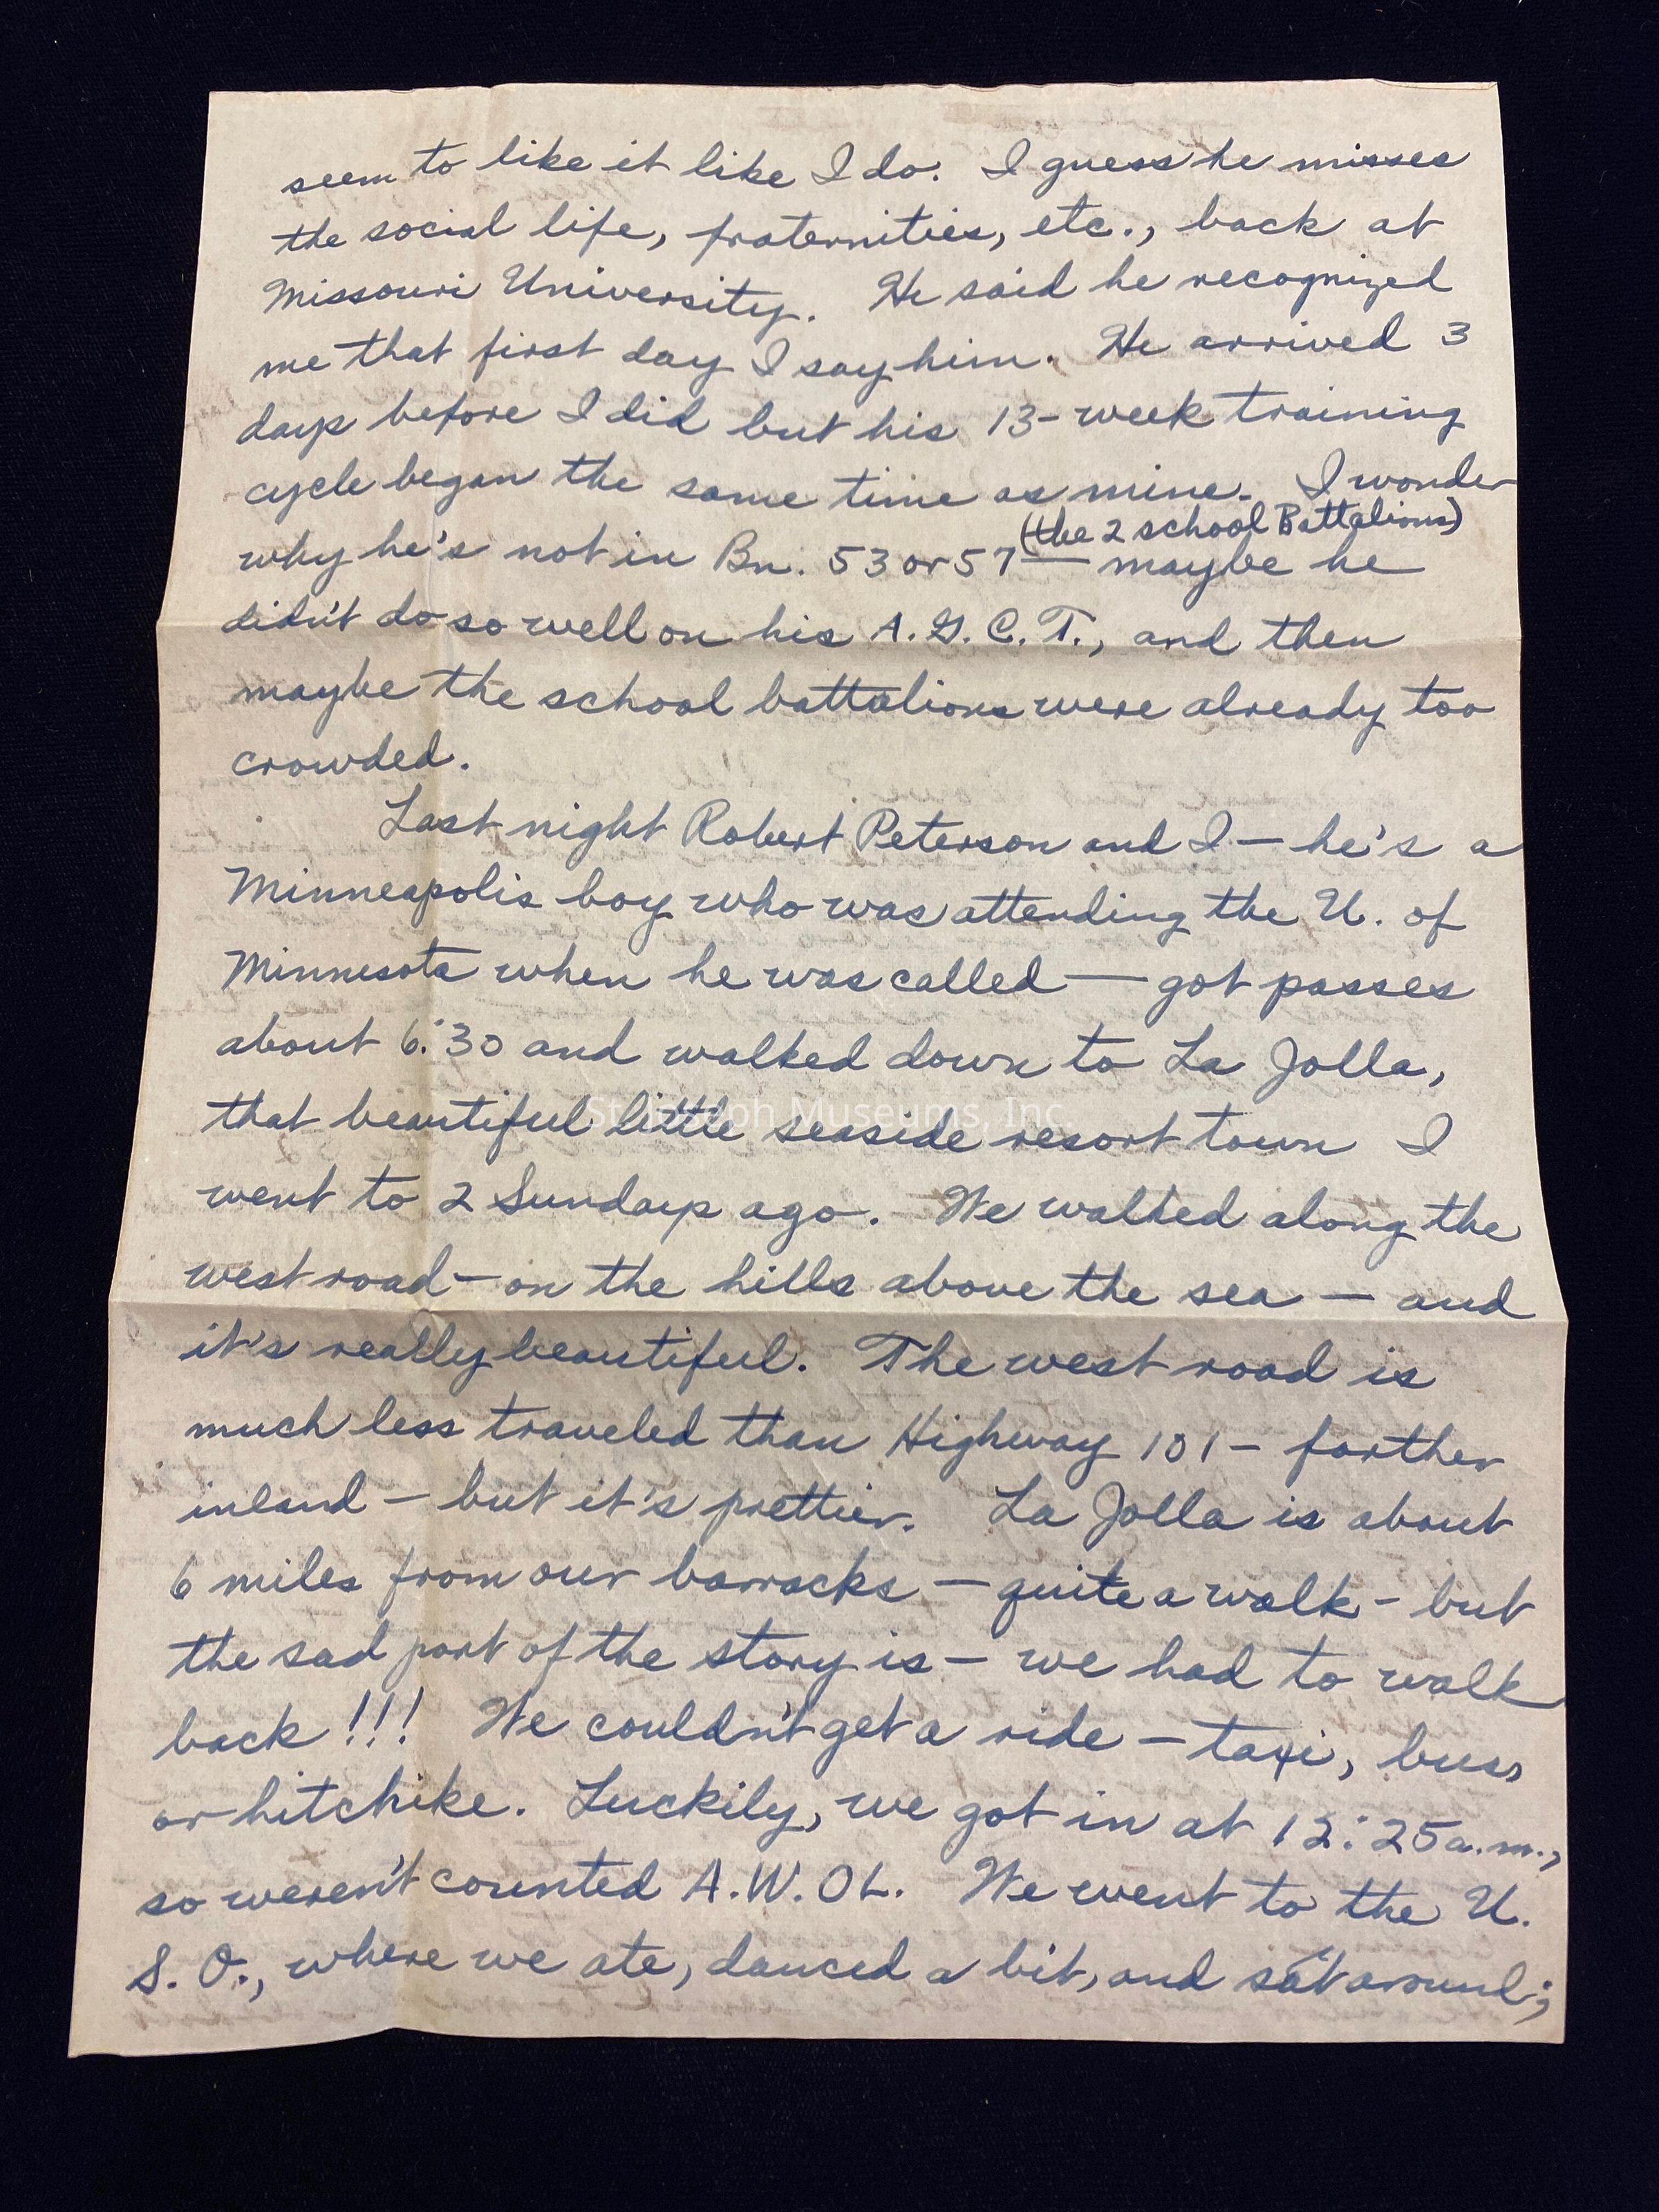 seem to like it like I do. I guess he misses
the social life, fraternities, etc., back at
Missouri University. He said he recognized
me that first day I say him. He arrived 3
days before I did but his 13-week training
cycle began the same time as mine. I wonder
(the 2 school Battalions)
why he's not in Bn. 53 or 57 — maybe he
didn't do so well on his A.G.C.T., and then
maybe the school battalions were already too
crowded.
Last night Robert Peterson and I — he's a
Minneapolis boy who was attending the U. of
Minnesota when he was called — got passes
about 6:30 and walked down to La Jolla,
that beautiful little seaside resort town I
St. Joseph Museums, Inc
went to 2 Sundays ago. We walked along the
west road — on the hills above the sea — and
it's really beautiful. The west road is
much less traveled than Highway 101 — farther
inland — but it's prettier. La Jolla is about
6 miles from our barracks — quite a walk — but
the sad part of the story is — we had to walk
back!!! We couldn't get a ride — taxi, bus,
or hitchike. Luckily, we got in at 12:25 a.m.,
so weren't counted A.W.OL. We went to the U.
S.O., where we ate, danced a bit, and sat around;